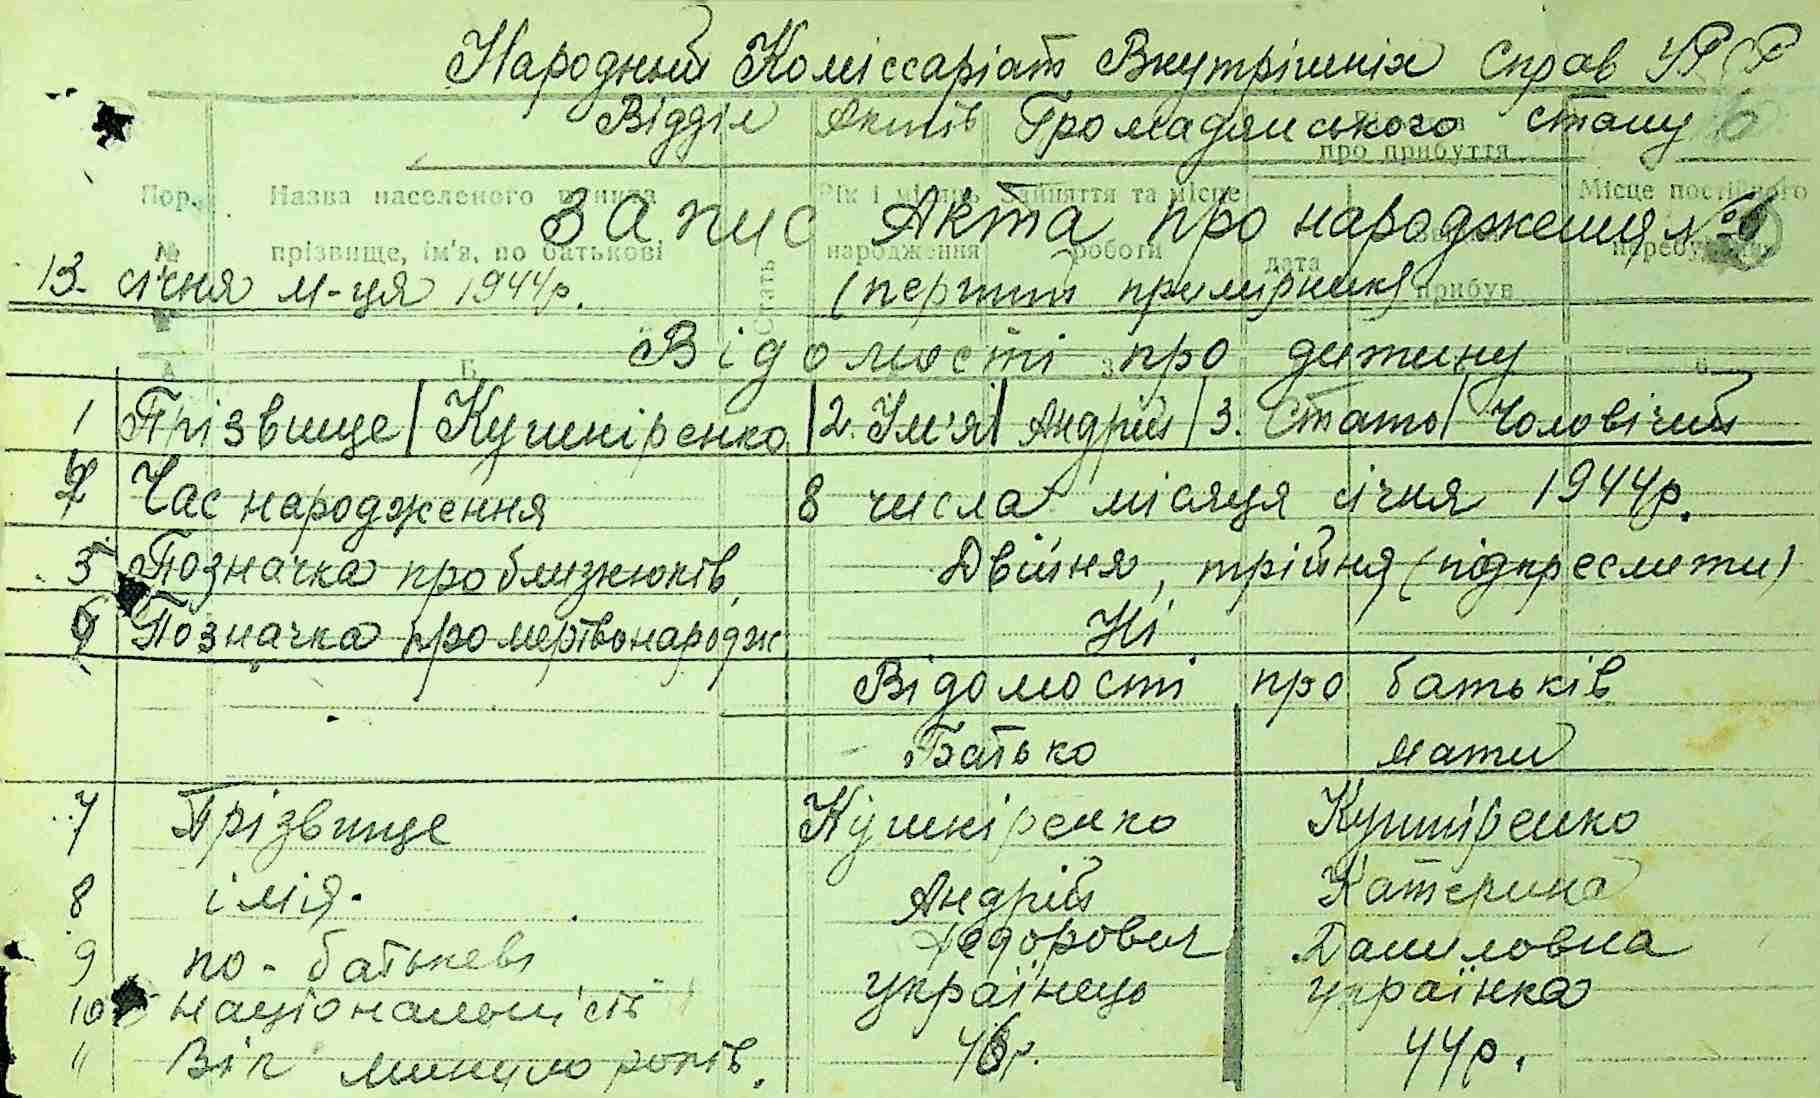 Народный Коміссаріат Внутрішніх Справ УРСР
Відділ Актів Громадянського стану
про прибуття
Пор. Назва населеного пункта Рік і місяць Зайняття та місце Місце постійного
Запис Акта про народження № 6
№ прізвище, ім'я, по батькові народження роботи дата
13 січня м-ця 1944р. (перший примірник) прибув
Відомості про дитину
А Б 3 6
1 Прізвище Кушніренко 2. Ім'я Андрій 3. Стать Чоловічий
Час народження 8 числа місяця січня 1944р.
5 Позначка про близнюків Двійня, трійня (підкреслити)
Позначка про мертвонародж Ні
Відомості про батьків
Батько мати
7 Прізвище Кушніренко Кушніренко
8 імія. Андрій Катерина
9 по-батькеві Федорович Даниловна
10 національність українець українка
11 Вік минуло років. 44р.